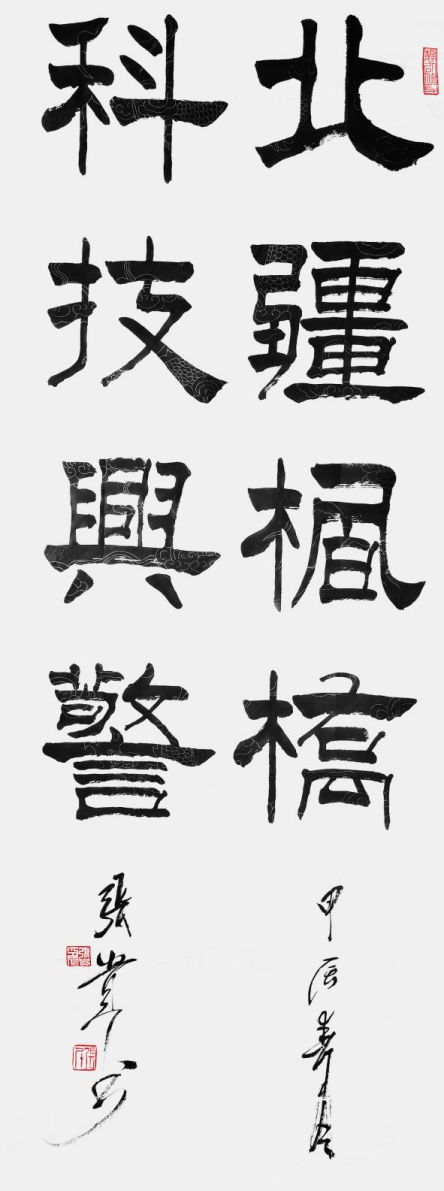 北疆楓橋
甲辰春
科技興警
張